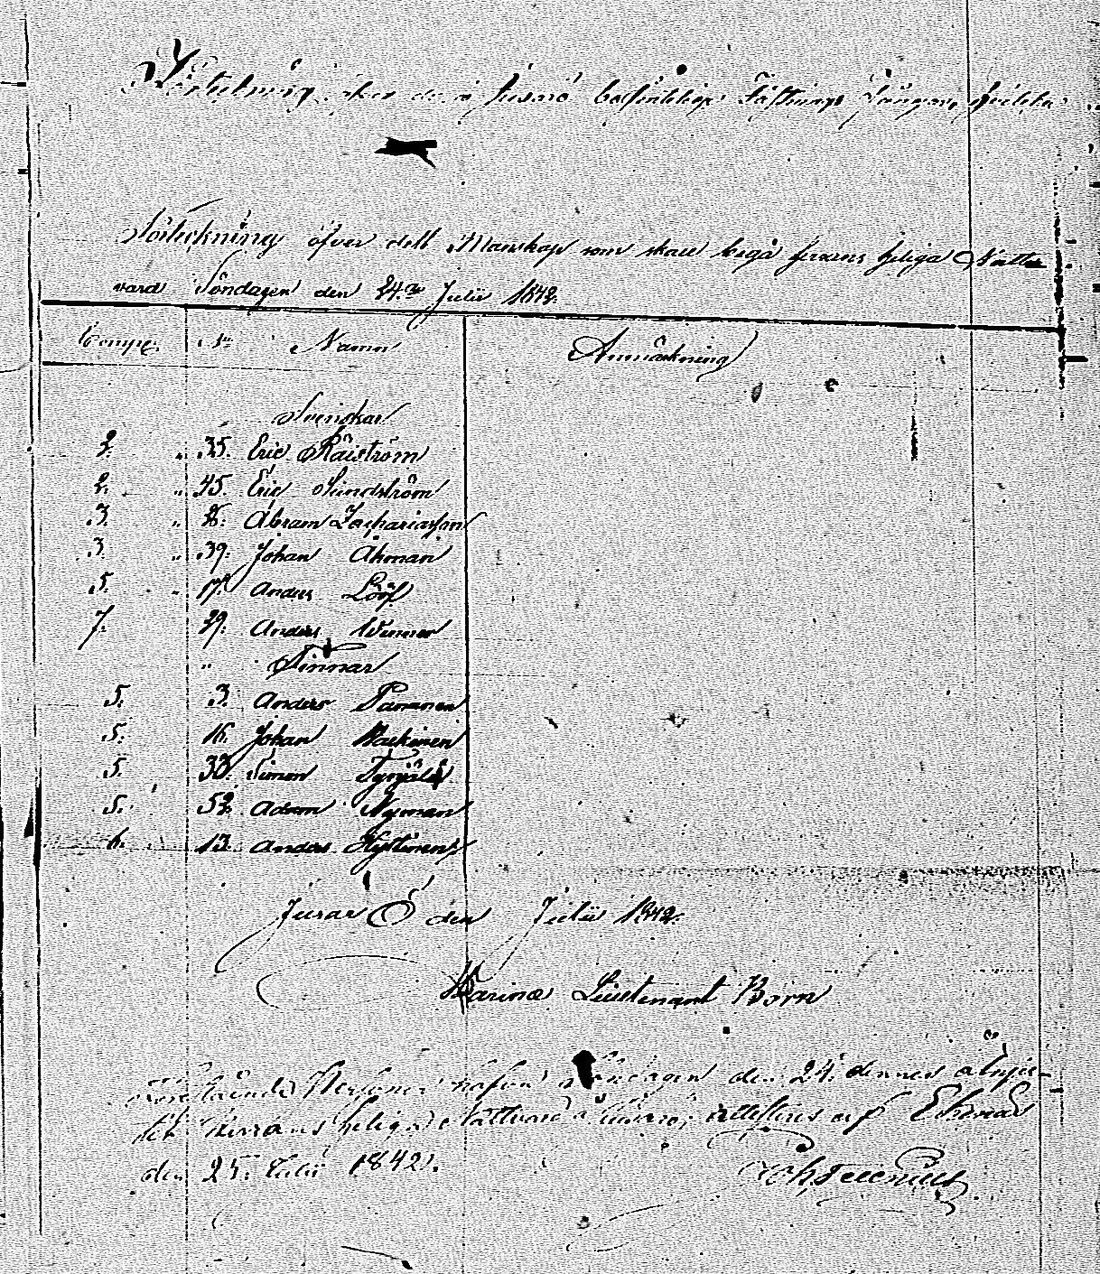 Förteckning öfver de å Jusarö befinteliga Fästnings Fångar, hvilka
Förteckning öfver dett Manskap som skall begå herrens heliga Natt
vard Söndagen den 24:de Julii 1842.
Compe: No Namn Anmärkning
Svenskar
2. " 35. Eric
2. " 45. Eric Sundström
3. " 8. Abram Zachariasson
3. " 39. Johan Åhman
5. " 17. Anders Lööf
7. 29. Anders Wenner
" Finnar
5. 3. Anders Pananen
5. 16. Johan
5. 33. Simon
5. 52. Adam Nyman
6. 13. Anders
Jusar Ö den Julii 1842.
Marine Lieutenant Born
Förestående Personer hafva Söndagen den 24 dennes
tit Herrans heliga Nattvard å Jusarö, attesteras af Ekenäs
den 25. Julii 1842.